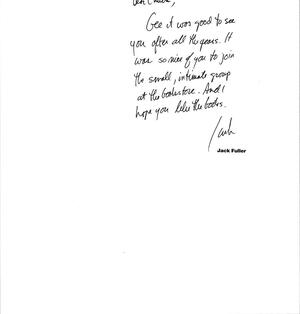 Gee it was good to see
you after all the years. It
was so nice of you to join
the small, intimate group
at the bookstore. And I
hope you like the books.
Jack
Jack Fuller